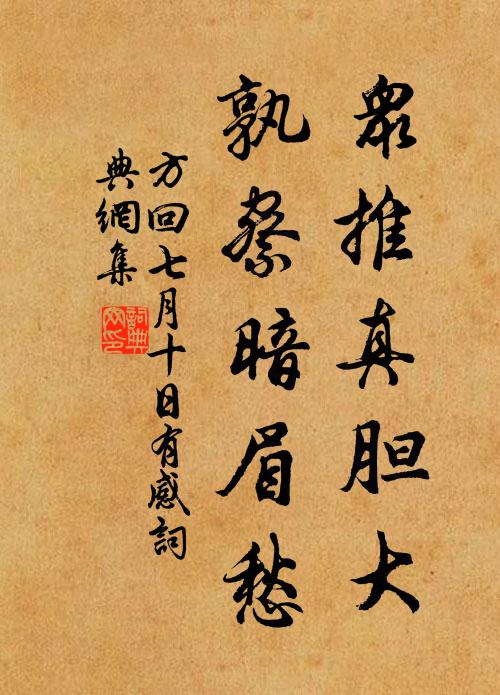 衆推真胆大
孰察暗眉愁
方回七月十日有感詞
典網集
詞典網印